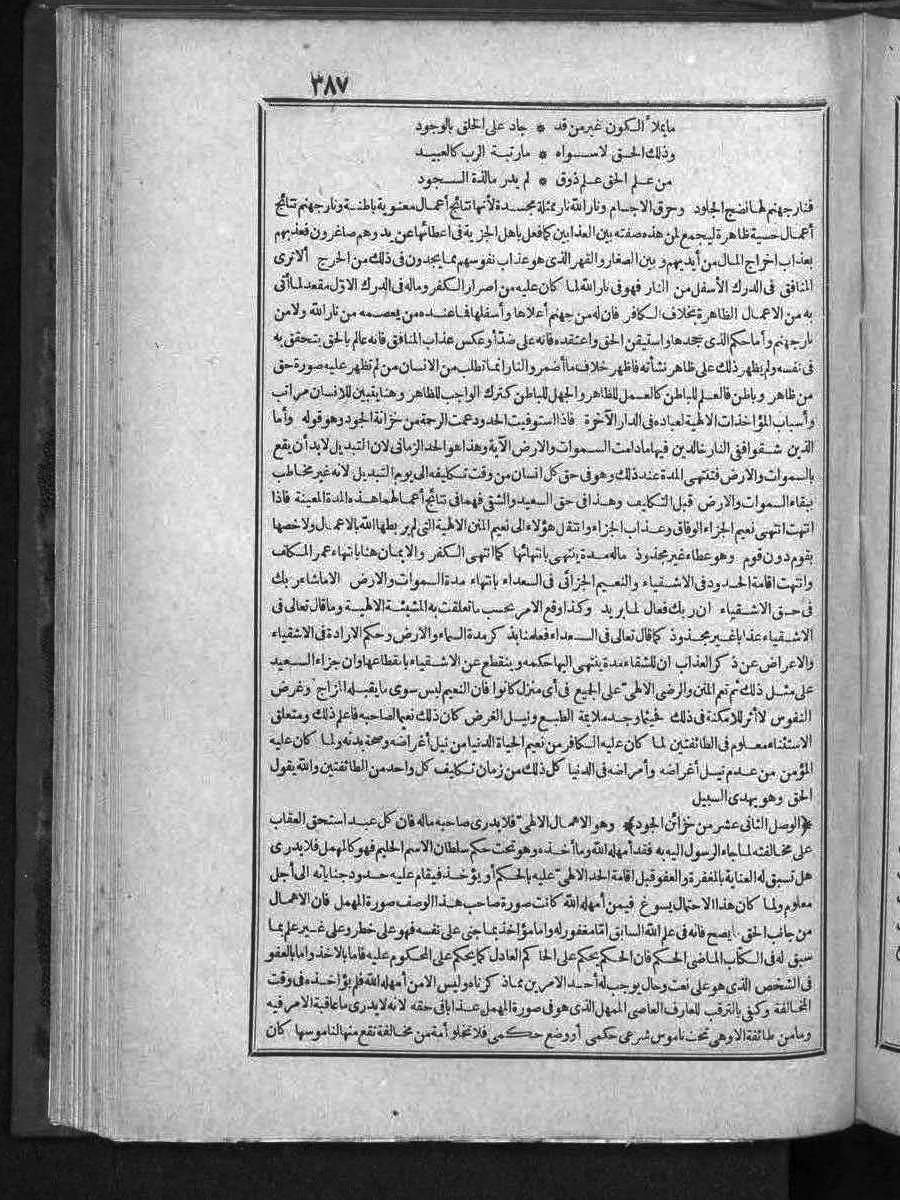 ٣٨٧
ما يملأ الكون غير من قد * جاد على الخلق بالوجود
وذلك الحق لا سواه * ما رتبة الرب كالعبيد
من علم الحق علم ذوق * لم يدر مالذة السجود
فنار جهنم لها نضج الجلود وحرق الاجسام ونار الله نار ممثلة مجسدة لأنها نتائج أعمال معنوية باطنة ونار جهنم نتائج
أعمال حسية ظاهرة ليجمع لمن هذه صفته بين العذابين كما فعل بأهل الجزية فى اعطائها عن يد وهم صاغرون فعذبهم
بعذاب اخراج المال من أيديهم وبين الصغار والقهر الذى هو عذاب نفوسهم بما يجدون فى ذلك من الحرج ألا ترى
المنافق فى الدرك الأسفل من النار فهو فى نار الله لما كان عليه من اصرار الكفر وماله فى الدرك الاول مقعد لما أتى
به من الاعمال الظاهرة بخلاف الكافر فان له من جهنم أعلاها وأسفلها فما عنده من يعصمه من نار الله ولا من
نار جهنم وأما حكم الذى جحدها واستيقن الحق واعتقده فانه على ضد أو عكس عذاب المنافق فانه عالم بالحق يتحقق به
فى نفسه ولم يظهر ذلك على ظاهر نشأته فاظهر خلاف ما أضمر والنار انما تطلب من الانسان من لم تظهر عليه صورة حق
من ظاهر وباطن فالعلم للباطن كالعمل للظاهر والجهل للباطن كترك الواجب للظاهر وهنا يتبين للانسان مراتب
وأسباب المؤاخذات الالهية لعباده فى الدار الآخرة فاذا استوفيت الحدود عمت الرحمة من خزانة الجود وهو قوله وأما
الذين شقوا ففى النار خالدين فيها ما دامت السموات والارض الآية وهذا هو الحد الزمانى لان التبديل لابد أن يقع
بالسموات والارض فتنتهى المدة عند ذلك وهو فى حق كل انسان من وقت تكليفه الى يوم التبديل لانه غير مخاطب
ببقاء السموات والارض قبل التكليف وهذا فى حق السعيد والشقى فهما فى نتائج أعمالهما هذه المدة المعينة فاذا
انتهت انتهى نعيم الجزاء الوفاق وعذاب الجزاء وانتقل هؤلاء الى نعيم المنن الالهية التى لم يربطها الله بالاعمال ولا خصها
بقوم دون قوم وهو عطاء غير مجذوذ ماله مدة ينتهى بانتهائها كما انتهى الكفر والايمان هنا بانتهاء عمر المكلف
وانتهت اقامة الحدود فى الاشقياء والنعيم الجزائى فى السعداء بانتهاء مدة السموات والارض الا ما شاء ربك
فى حق الاشقياء ان ربك فعال لما يريد وكذا وقع الامر بحسب ما تعلقت به المشيئة الالهية وما قال تعالى فى
الاشقياء عذابا غير مجذوذ كما قال تعالى فى السعداء فعلمنا بذكر مدة السماء والارض وحكم الارادة فى الاشقياء
والاعراض عن ذكر العذاب ان للشقاء مدة ينتهى اليها حكمه وينقطع عن الاشقياء بانقطاعها وان جزاء السعيد
على مثل ذلك ثم نعم المنن والرضى الالهى على الجميع فى أى منزل كانوا فان النعيم ليس سوى ما يقبله المزاج وغرض
النفوس لا أثر للامكنة فى ذلك فحيثما وجد ملايمة الطبع ونيل الغرض كان ذلك نعيما لصاحبه فاعلم ذلك ومتعلق
الاستثناء معلوم فى الطائفتين لما كان عليه الكافر من نعيم الحياة الدنيا من نيل أغراضه وصحة بدنه ولما كان عليه
المؤمن من عدم نيل أغراضه وأمراضه فى الدنيا كل ذلك من زمان تكليف كل واحد من الطائفتين والله يقول
الحق وهو يهدى السبيل
﴿الوصل الثانى عشر من خزائن الجود﴾ وهو الاهمال الالهى فلا يدرى صاحبه ماله فان كل عبد استحق العقاب
على مخالفته لما جاء الرسول اليه به فقد أمهله الله وما أخذه وهو تحت حكم سلطان الاسم الحليم فهو كالمهمل فلا يدرى
هل تسبق له العناية بالمغفرة والعفو قبل اقامة الحد الالهى عليه بالحكم أو يؤخذ فيقام عليه حدود جناياته الى أجل
معلوم ولما كان هذا الاحتمال يسوغ فيمن أمهله الله كانت صورة صاحب هذا الوصف صورة المهمل فان الاهمال
من جانب الحق يصح فانه فى علم الله السابق اما مغفور له واما مؤاخذ بما جنى على نفسه فهو على خطر وعلى غير علم بما
سبق له فى الكتاب الماضى الحكم فان الحكم يحكم على الحاكم العادل كما يحكم على المحكوم عليه فاما بالاخذ واما بالعفو
فى الشخص الذى هو على نعت وحال يوجب له أحد الامرين مما ذكرناه وليس الا من أمهله الله فلم يؤاخذه فى وقت
المخالفة وكفى بالترقب للعارف العاصى الممهل الذى هو فى صورة المهمل عذابا فى حقه لانه لا يدرى ما عاقبة الامر فيه
وما من طائفة الا وهى تحت ناموس شرعى حكمى أو وضع حكمى فلا تخلو أمة من مخالفة تقع منها لناموسها كان